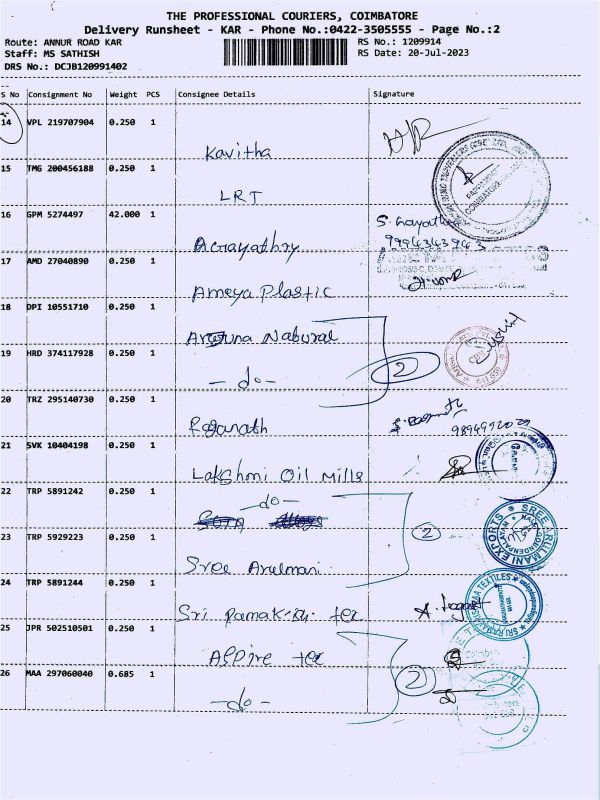 THE PROFESSIONAL COURIERS, COIMBATORE
Delivery Runsheet - KAR - Phone No.:0422-3505555 - Page No.:2
Route: ANNUR ROAD KAR
RS No.: 1209914
Staff: MS SATHISH
RS Date: 20-Jul-2023
DRS No.: DCJB120991402
S No Consignment No Weight PCS Consignee Details Signature
14 VPL 219707904 0.250 1
Kavitha
15 TMG 200456188 0.250 1
LRT
16 GPM 5274497 42.000 1
S. Gayathri
9994343943
17 AMD 27040890 0.250 1
Ameya Plastic
18 DPI 10551710 0.250 1
19 HRD 374117928 0.250 1
- do -
2
20 TRZ 295140730 0.250 1
21 SVK 10404198 0.250 1
Lakshmi Oil Mills
22 TRP 5891242 0.250 1
- do -
23 TRP 5929223 0.250 1
2
Sree Arulmani
SREE ARULMANI EXPORTS
24 TRP 5891244 0.250 1
Sri Ramak.kri. tex
25 JPR 502510501 0.250 1
Alpine tex
26 MAA 297060040 0.685 1
2
- do -